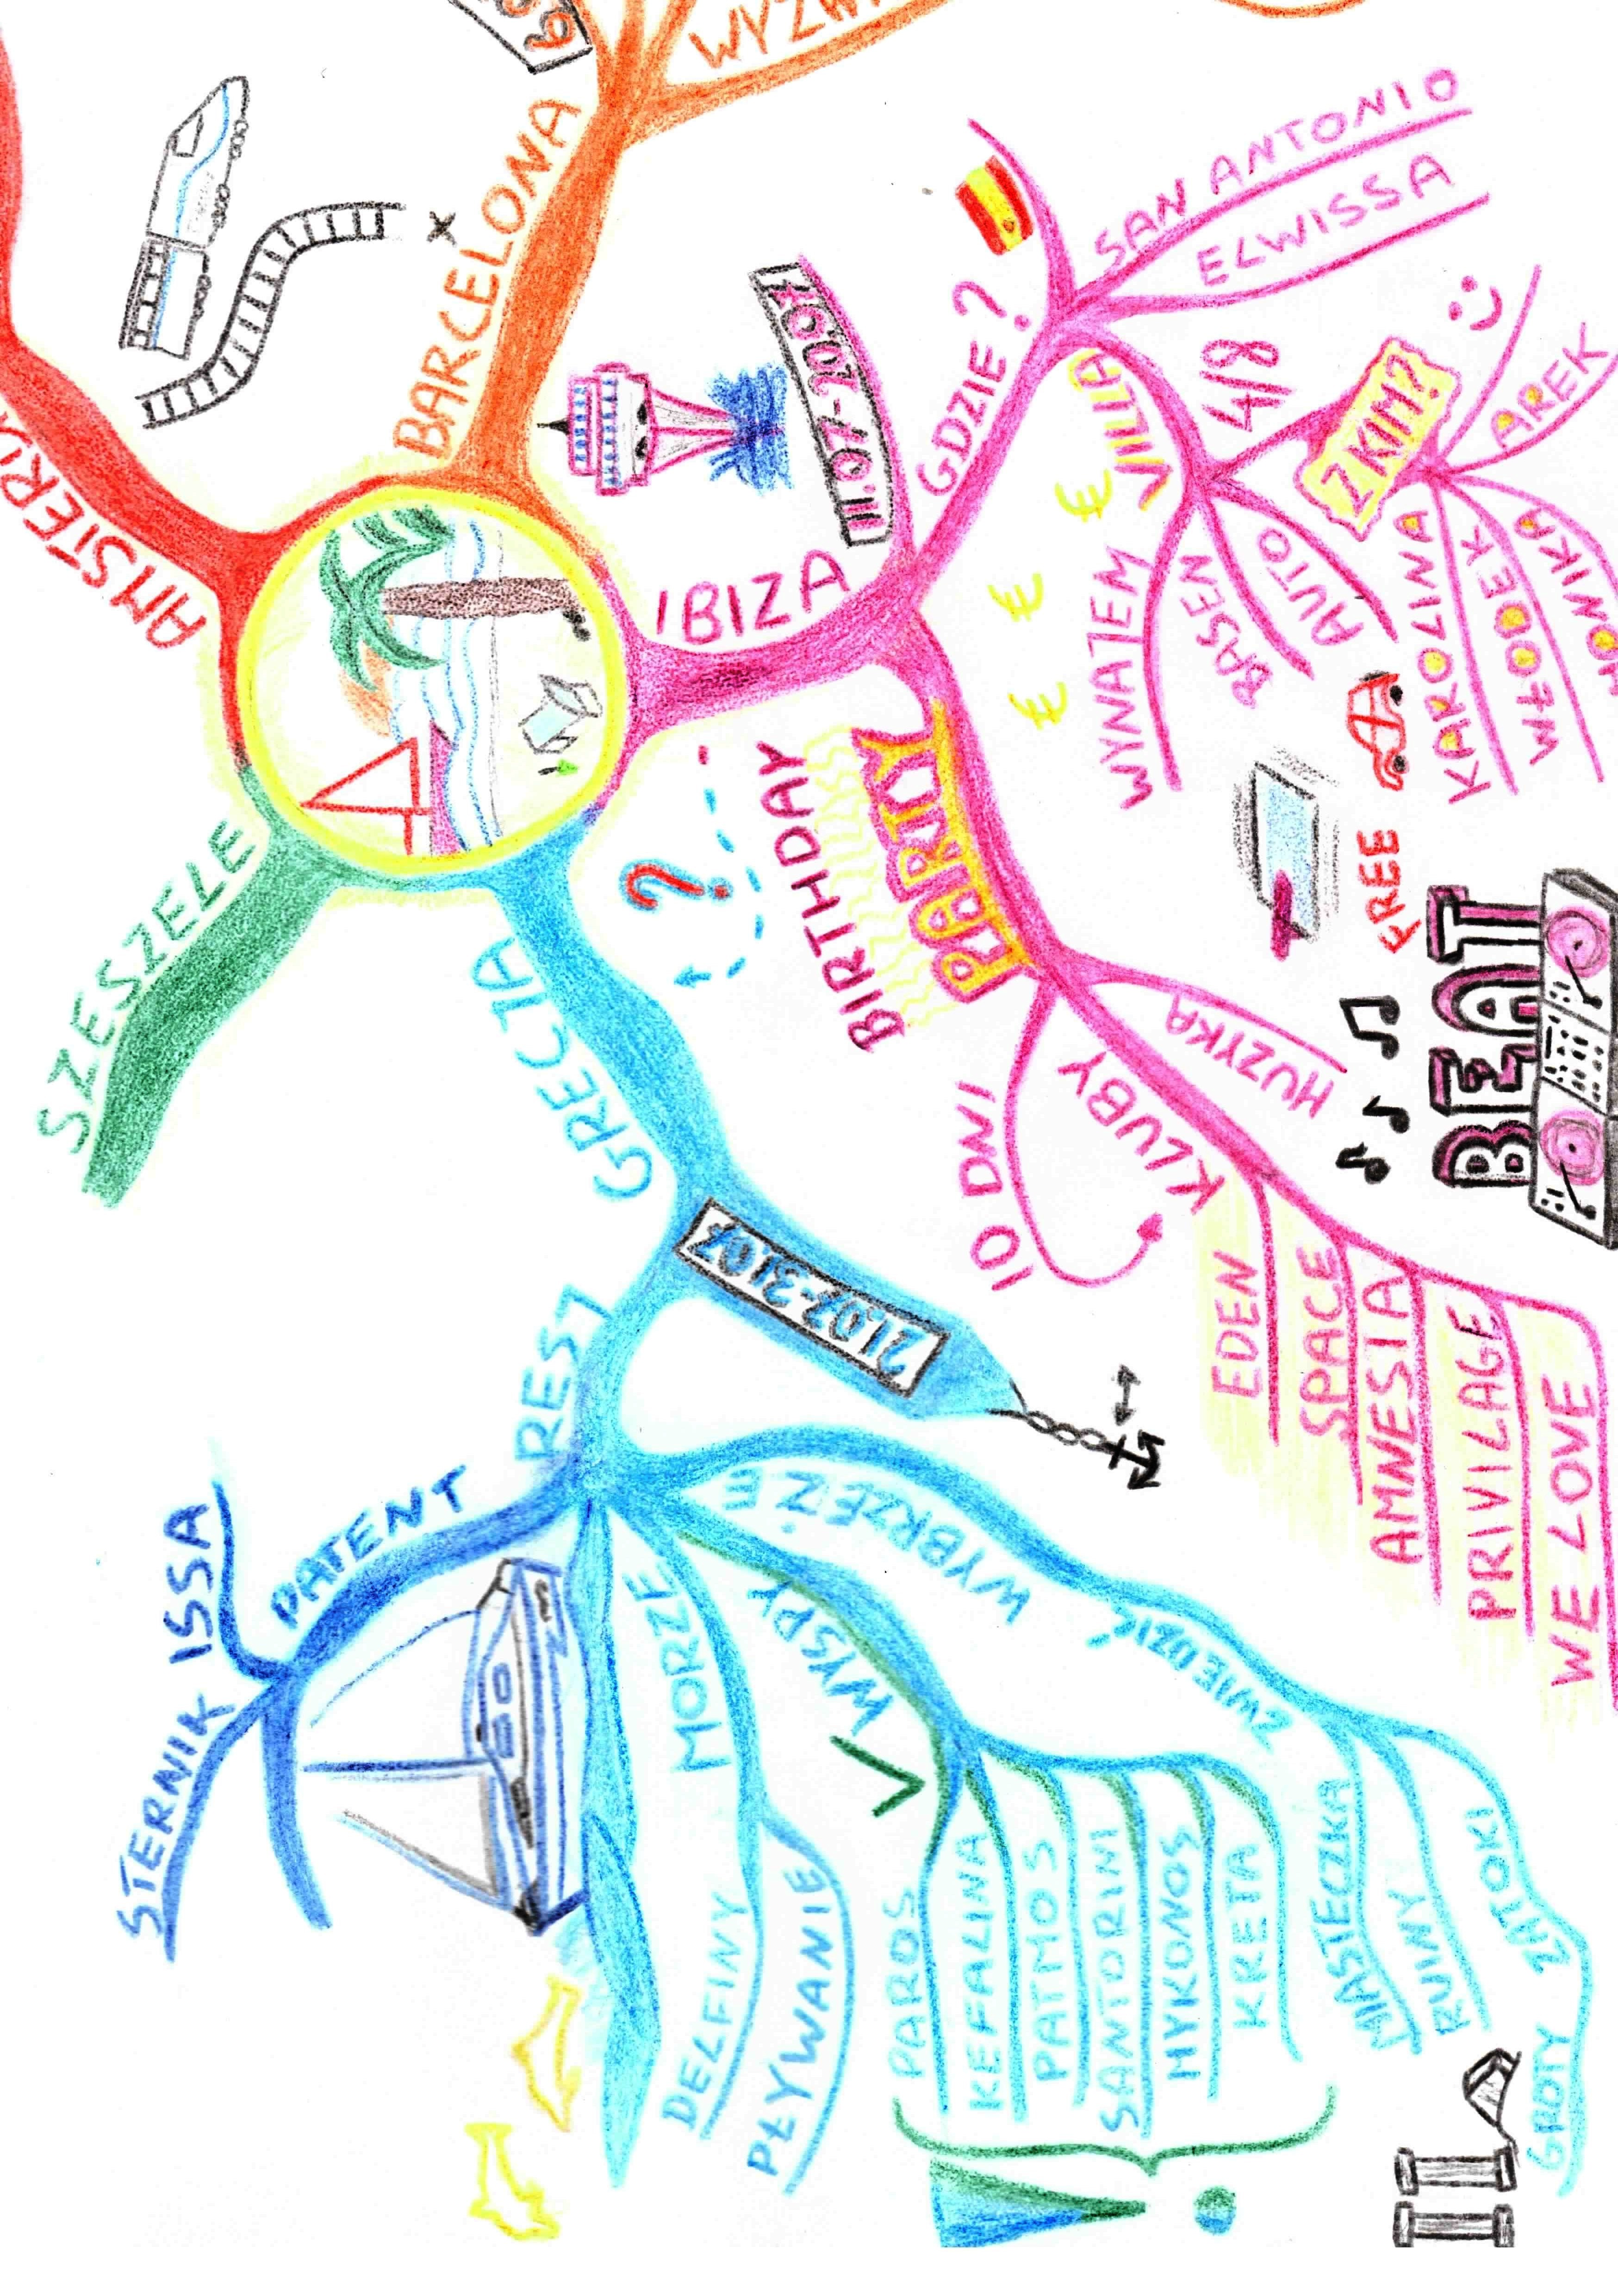 BARCELONA
IBIZA
11.07-20.07
GDZIE?
SAN ANTONIO
ELWISSA
VILLA
4/8
Z KIM?
AREK
KAROLINA
WŁODEK
WYNAJEM
BASEN
AUTO
FREE
BIRTHDAY
PARTY
10 DNI
KLUBY
MUZYKA
BEAT
EDEN
SPACE
AMNESIA
PRIVILAGE
WE LOVE
GRECJA
21.07-31.07
REST
PATENT
ISSA
STERNIK
MORZE
DELFINY
PŁYWANIE
WYSPY
PAROS
KEFALINA
PATMOS
SANTORINI
MYKONOS
KRETA
WYBRZEŻE
ZWIEDZIĆ
MIASTECZKA
RUINY
ZATOKI
GROTY
SZESZELE